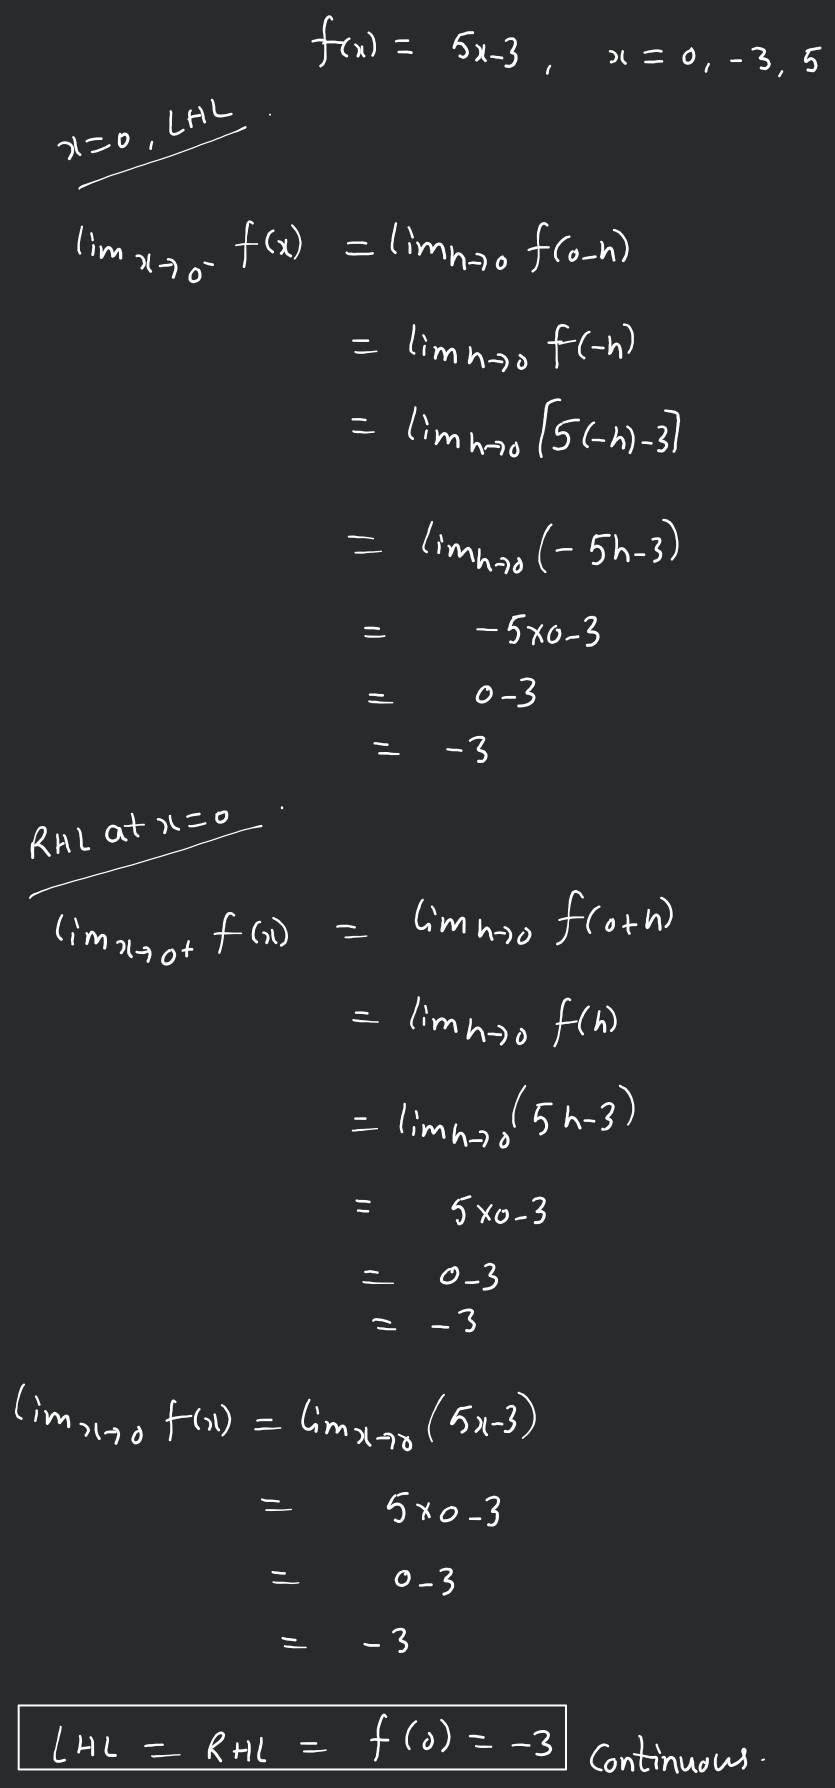 f(x) = 5x-3, x = 0, -3, 5
x=0, LHL
lim x→0⁻ f(x) = lim h→0 f(0-h)
= lim h→0 f(-h)
= lim h→0 [5(-h)-3]
= lim h→0 (-5h-3)
= -5×0-3
= 0-3
= -3
RHL at x=0
lim x→0+ f(x) = lim h→0 f(0+h)
= lim h→0 f(h)
= lim h→0 (5h-3)
= 5×0-3
= 0-3
= -3
lim x→0 f(x) = lim x→0 (5x-3)
= 5×0-3
= 0-3
= -3
LHL = RHL = f(0) = -3 Continuous.